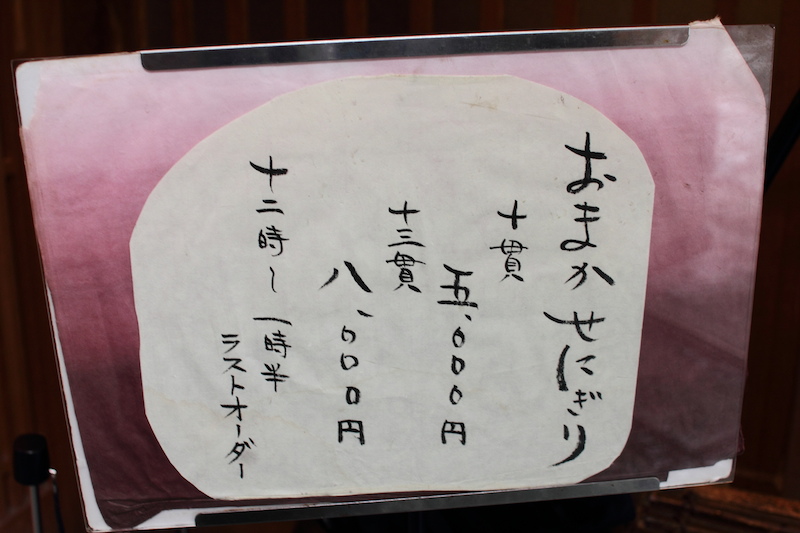 おまかせにぎり
十貫
五、〇〇〇円
十三貫
八、〇〇〇円
十二時〜一時半
ラストオーダー